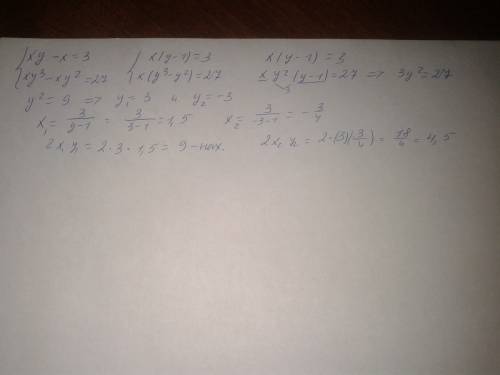 { xy - x = 3   { x(y-1) = 3   x(y-1) = 3
{ xy³ - xy² = 27   { x(y³-y²) = 27   x y² (y-1) = 27 => 3y² = 27
3
y² = 9 => y₁ = 3 и y₂ = -3
x₁ = 3/(y-1) = 3/(3-1) = 1,5   x₂ = 3/(-3-1) = -3/4
2x₁y₁ = 2·3·1,5 = 9 - наиб.   2x₂y₂ = 2·(3)(3/4) = 18/4 = 4,5